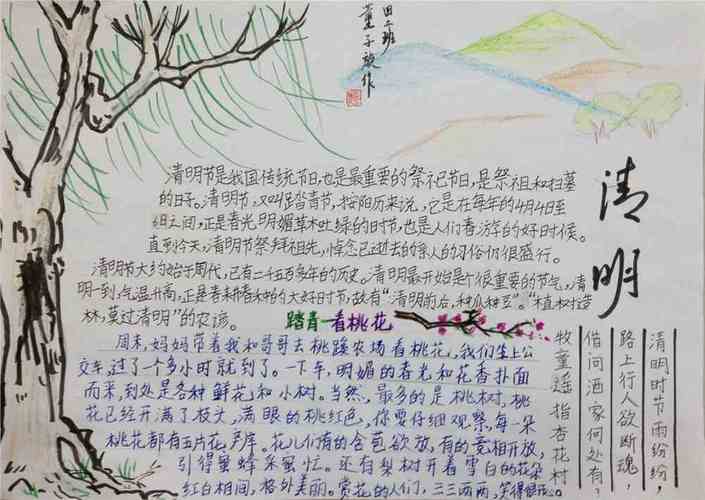 四二班
董子敬作
清明
清明节是我国传统节日,也是最重要的祭祀节日,是祭祖和扫墓
的日子。清明节,又叫踏青节,按阳历来说,它是在每年的4月4日至
6日之间,正是春光明媚草木吐绿的时节,也是人们春游的好时候。
直到今天,清明节祭拜祖先,悼念已逝去的亲人的习俗仍很盛行。
清明节大约始于周代,已有二千五百多年的历史。清明最开始是个很重要的节气,清
明一到,气温升高,正是春耕春种的大好时节,故有“清明前后,种瓜种豆”。“植树造
林,莫过清明”的农谚。
踏青—看桃花
周末,妈妈带着我和哥哥去桃蹊农场看桃花,我们坐上公
交车,过了个多小时就到了。一下车,明媚的春光和花香扑面
而来,到处是各种鲜花和小树。当然,最多的是桃树,桃
花已经开满了枝头,满眼的桃红色,你要仔细观察,每一朵
桃花都有五片花
花儿们有的含苞欲放,有的竞相开放,
引得蜜蜂采蜜忙。还有梨树开着雪白的花朵
红白相间,格外美丽。赏花的人们,三三两两,笑得
清明时节雨纷纷,
路上行人欲断魂,
借问酒家何处有
牧童遥指杏花村